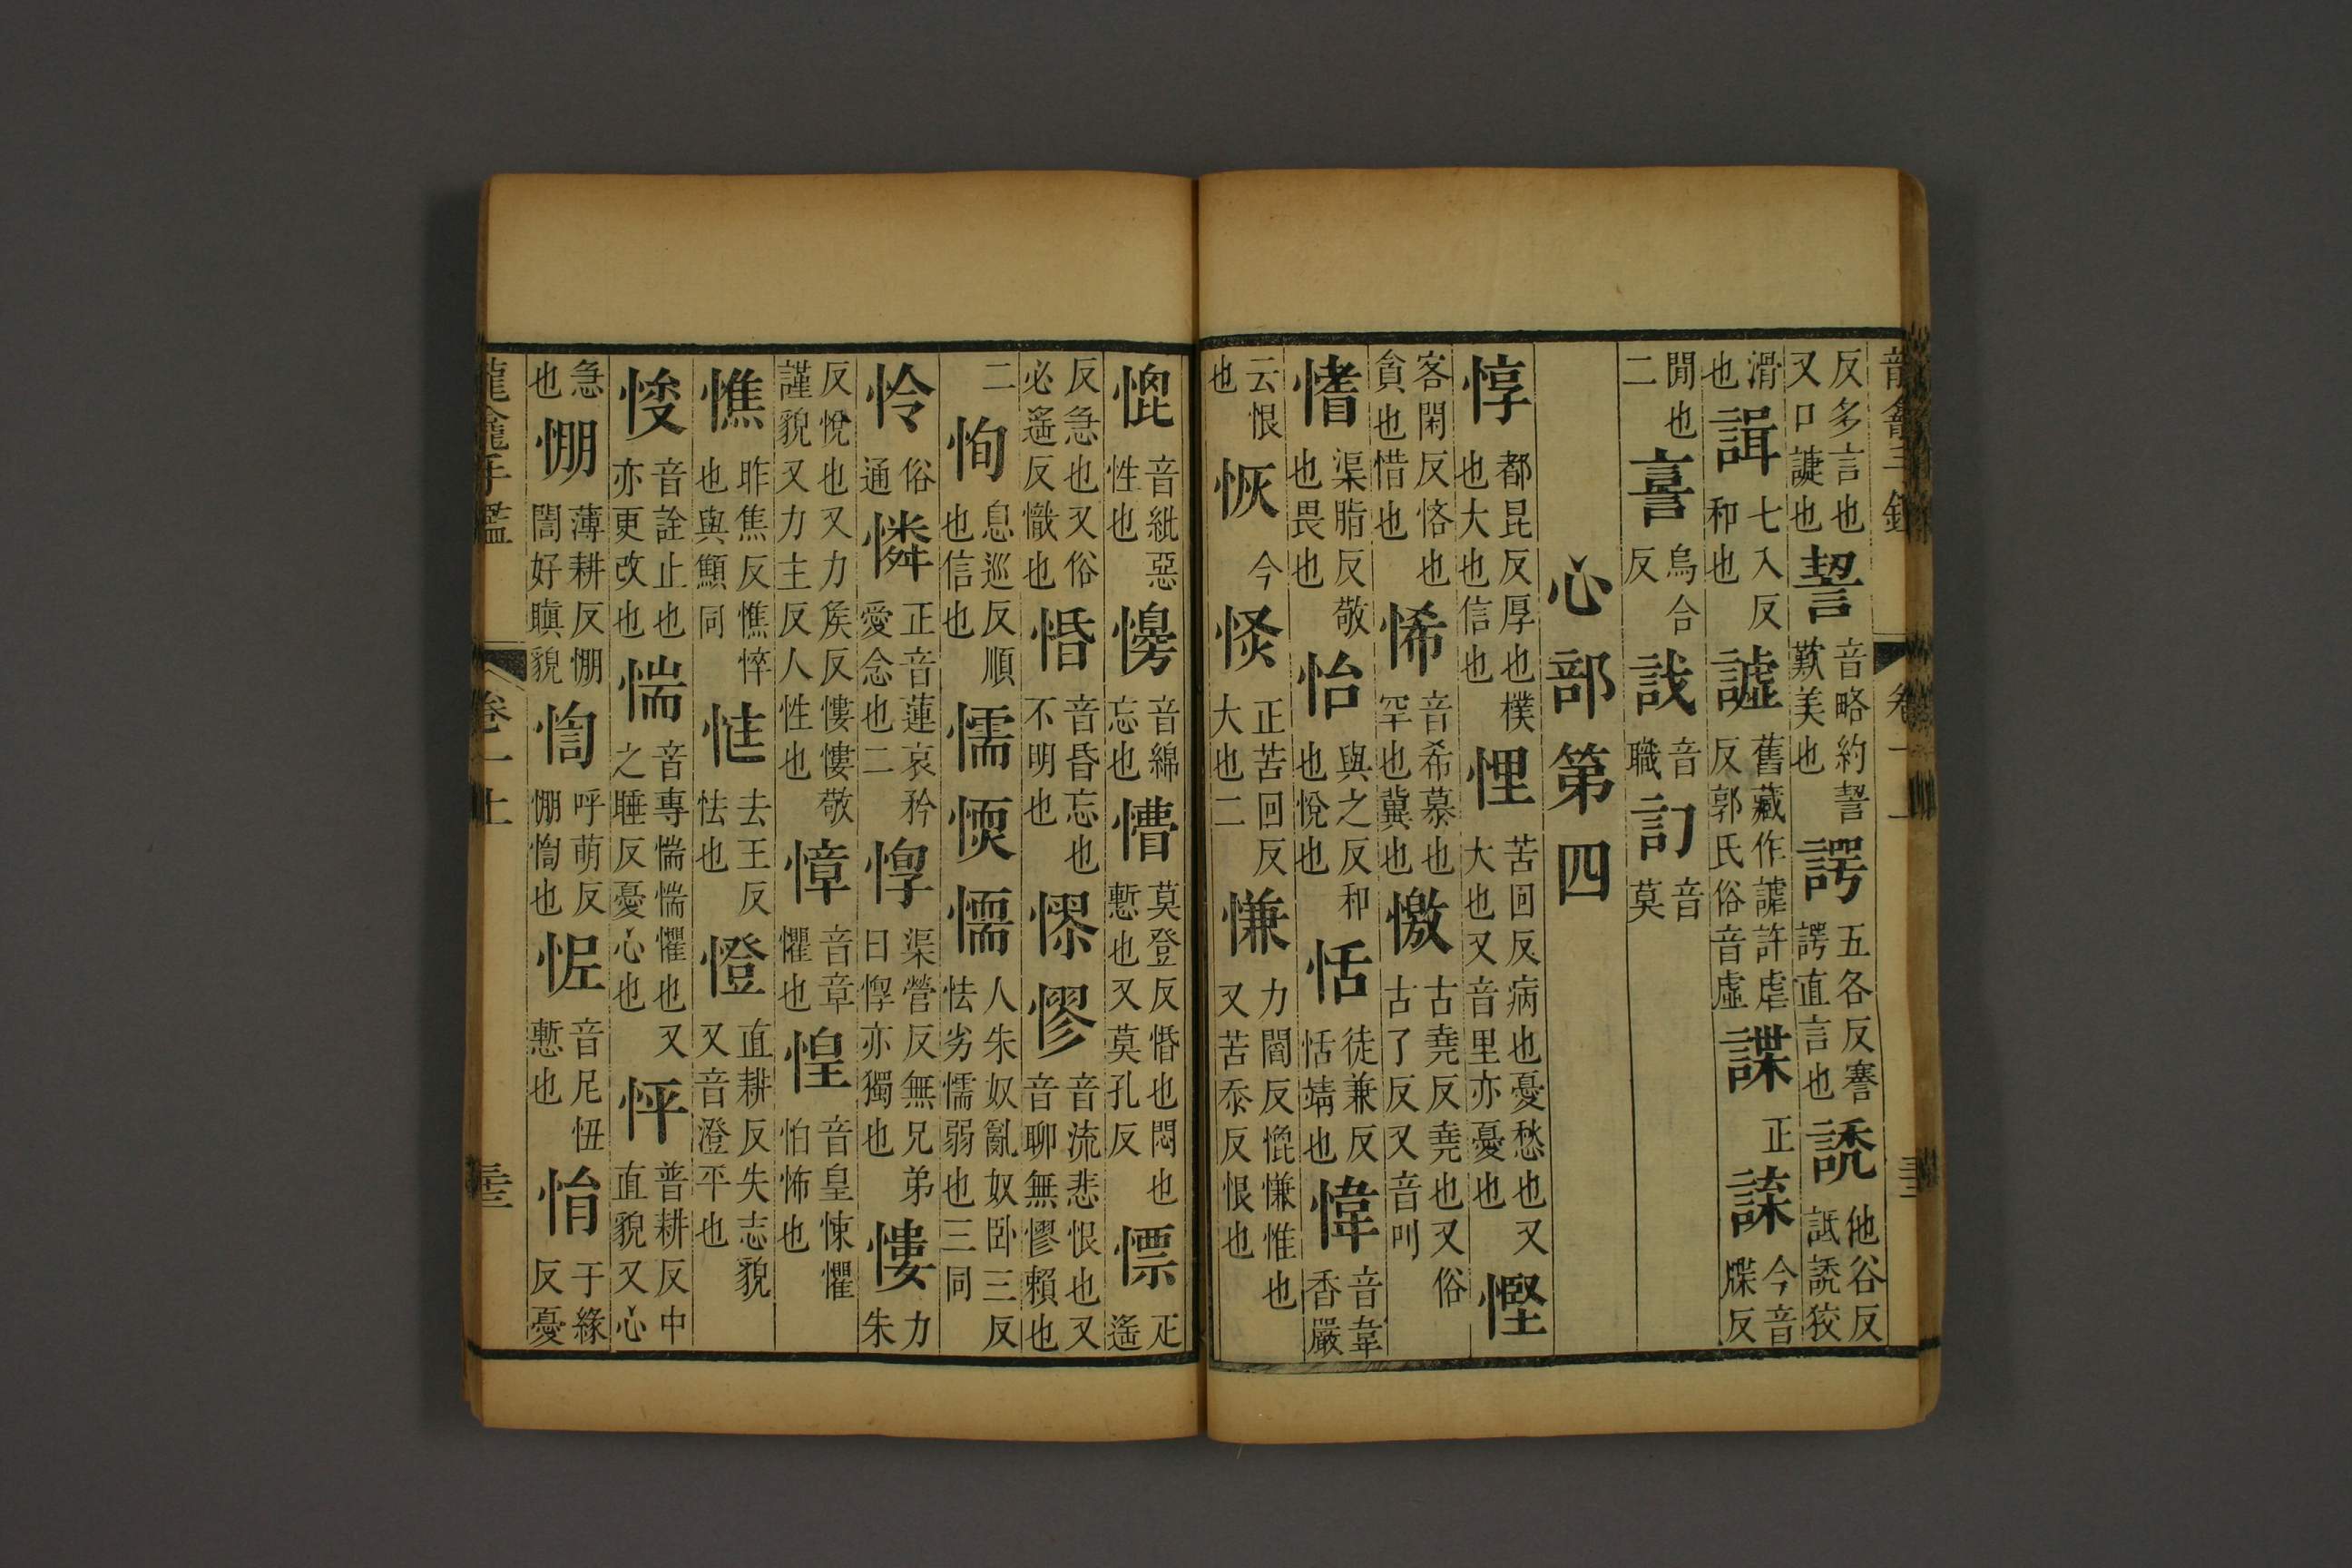 反多言也又口誱也䂮音略約䂮歎美也諤五各反謇諤直言也䛢他谷反詆䛢狡
滑也諿七入反和也謔舊藏作謔許虐反郭氏俗音虛諜正䜓今音牒反
閒也二譶烏合反䛟音職訂音莫
心部第四
惇都昆反厚也樸也大也信也悝苦回反病也憂愁也又大也又音里亦憂也慳
客閑反悋也貪也惜也悕音希慕也罕也冀也憿古堯反憿也又俗古了反又音叫
愭渠脂反敬也畏也怡與之反和也悅也恬徒兼反恬靖也愇音韋香嚴
云恨也恢今㤥正苦回反大也二慊力閻反㥕慊惟也又苦忝反恨也
㥓音紕惡性也㦄音綿忘也懵莫登反惛也悶也慙也又莫孔反慓疋遙
反急也又俗必遙反幟也惛音昏忘也不明也㥹憀音流悲恨也又音聊無憀賴也
二恂息巡反順也信也懦㥠懦人朱奴亂奴卧三反怯劣懦弱也三同
怜俗通憐正音蓮哀矜愛念也二惸渠營反無兄弟曰惸亦獨也慺力朱
反悅也又力矦反慺慺敬謹貌又力主反人性也慞音章懼也惶音皇悚懼怕怖也
憔昨焦反憔悴也與顦同恇去王反怯也憕直耕反失志貌又音澄平也
悛音詮止也亦更改也惴音專惴惴懼也又之睡反憂心也怦普耕反中直貌又心
急也㥊薄耕反㥊誾好瞋貌㥧呼萌反㥊㥧也怩音尼忸慙也悁于緣反憂
龍龕手鑑
卷一上